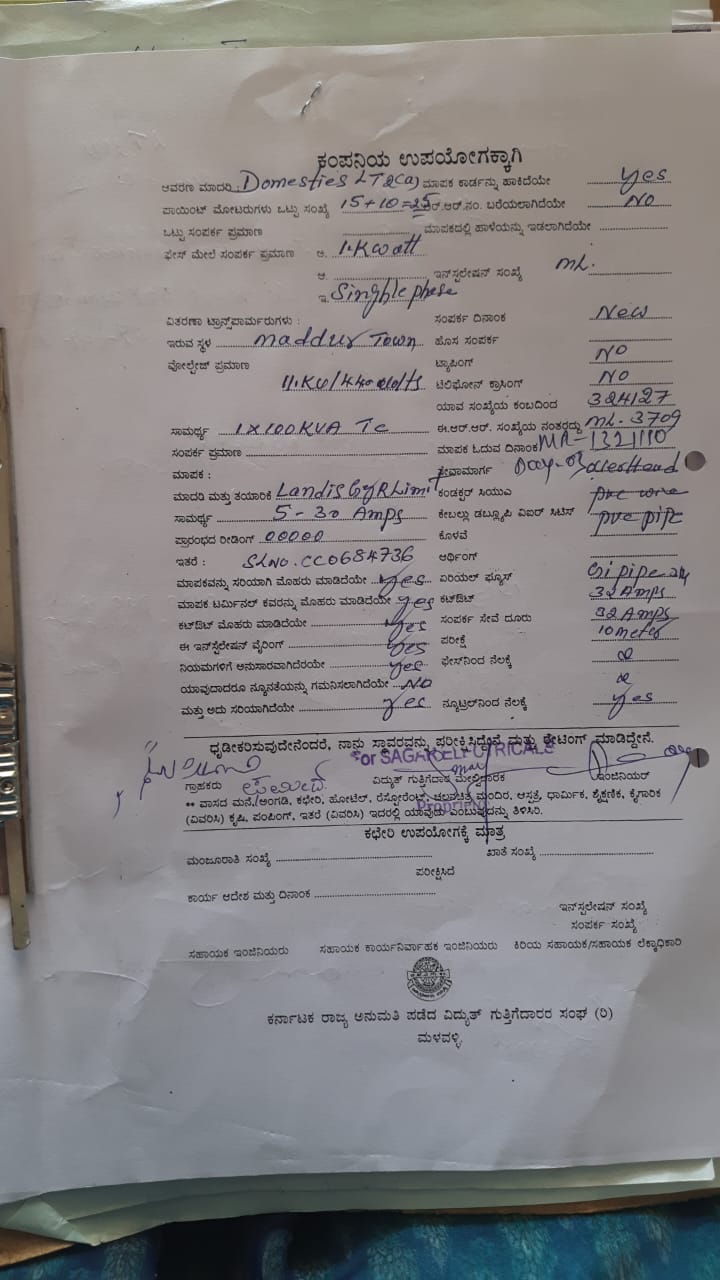 ಕಂಪನಿಯ ಉಪಯೋಗಕ್ಕಾಗಿ
ಆವರಣ ಮಾದರಿ : Domesties LT2(a) ಮಾಪಕ ಕಾರ್ಡನ್ನು ಹಾಕಿದೆಯೇ yes
ಪಾಯಿಂಟ್ ಮೋಟರುಗಳು ಒಟ್ಟು ಸಂಖ್ಯೆ 15+10=25 ಆರ್.ಆರ್.ನಂ. ಬರೆಯಲಾಗಿದೆಯೇ NO
ಒಟ್ಟು ಸಂಪರ್ಕ ಪ್ರಮಾಣ ಮಾಪಕದಲ್ಲಿ ಹಾಳೆಯನ್ನು ಇಡಲಾಗಿದೆಯೇ
ಫೇಸ್ ಮೇಲೆ ಸಂಪರ್ಕ ಪ್ರಮಾಣ ಅ. 1.Kwatt
ಆ. ಇನ್‌ಸ್ಟಲೇಷನ್ ಸಂಖ್ಯೆ ML.
ಇ. Singhle phese
ವಿತರಣಾ ಟ್ರಾನ್ಸ್‌ಫಾರ್ಮರುಗಳು : ಸಂಪರ್ಕ ದಿನಾಂಕ New
ಇರುವ ಸ್ಥಳ maddur Town ಹೊಸ ಸಂಪರ್ಕ
ವೋಲ್ಟೇಜ್ ಪ್ರಮಾಣ ಟ್ಯಾಪಿಂಗ್ NO
11.KV/440 volts ಟೆಲಿಫೋನ್ ಕ್ರಾಸಿಂಗ್ NO
ಯಾವ ಸಂಖ್ಯೆಯ ಕಂಬದಿಂದ 324127
ಸಾಮರ್ಥ್ಯ 1X100KVA Tc ಈ.ಆರ್.ಆರ್. ಸಂಖ್ಯೆಯ ನಂತರದ್ದು ML.3709
ಸಂಪರ್ಕ ಪ್ರಮಾಣ ಮಾಪಕ ಓದುವ ದಿನಾಂಕ MR-1321110
ಮಾಪಕ : ಸೇವಾಮಾರ್ಗ
ಮಾದರಿ ಮತ್ತು ತಯಾರಿಕೆ Landis GyRLimit ಕಂಡಕ್ಟರ್ ಸಿಯುಎ pvc wire
ಸಾಮರ್ಥ್ಯ 5-30 Amps ಕೇಬಲ್ಲು ಡಬ್ಲ್ಯೂಪಿ ವಿಐರ್ ಸಿಟಿಸ್ pvc pipe
ಪ್ರಾರಂಭದ ರೀಡಿಂಗ್ 00000 ಕೊಳವೆ
ಇತರೆ : SLNO.CC0684736 ಅರ್ಥಿಂಗ್
ಮಾಪಕವನ್ನು ಸರಿಯಾಗಿ ಮೊಹರು ಮಾಡಿದೆಯೇ yes ಏರಿಯಲ್ ಫ್ಯೂಸ್ Gi pipe
ಮಾಪಕ ಟರ್ಮಿನಲ್ ಕವರನ್ನು ಮೊಹರು ಮಾಡಿದೆಯೇ yes ಕಟ್‌ಔಟ್ 32 Amps
ಕಟ್‌ಔಟ್ ಮೊಹರು ಮಾಡಿದೆಯೇ yes ಸಂಪರ್ಕ ಸೇವೆ ದೂರು 32 Amps
ಈ ಇನ್‌ಸ್ಟಲೇಷನ್ ವೈರಿಂಗ್ yes ಪರೀಕ್ಷೆ 10 meter
ನಿಯಮಗಳಿಗೆ ಅನುಸಾರವಾಗಿದೆರೆಯೇ yes ಫೇಸ್‌ನಿಂದ ನೆಲಕ್ಕೆ
ಯಾವುದಾದರೂ ನ್ಯೂನತೆಯನ್ನು ಗಮನಿಸಲಾಗಿದೆಯೇ NO
ಮತ್ತು ಅದು ಸರಿಯಾಗಿದೆಯೇ yes ನ್ಯೂಟ್ರಲ್‌ನಿಂದ ನೆಲಕ್ಕೆ yes
ಧೃಡೀಕರಿಸುವುದೇನೆಂದರೆ, ನಾನು ಸ್ಥಾವರವನ್ನು ಪರೀಕ್ಷಿಸಿದ್ದೇನೆ ಮತ್ತು ರೇಟಿಂಗ್ ಮಾಡಿದ್ದೇನೆ.
For SAGAR ELECTRICALS
ಗ್ರಾಹಕರು ವಿದ್ಯುತ್ ಗುತ್ತಿಗೆದಾರ ಮೇಲ್ವಿಚಾರಕ ಇಂಜಿನಿಯರ್
** ವಾಸದ ಮನೆ, ಅಂಗಡಿ, ಕಛೇರಿ, ಹೋಟೆಲ್, ರೆಸ್ಟೋರೆಂಟ್, ಚಲನಚಿತ್ರ ಮಂದಿರ, ಆಸ್ಪತ್ರೆ, ಧಾರ್ಮಿಕ, ಶೈಕ್ಷಣಿಕ, ಕೈಗಾರಿಕ
(ವಿವರಿಸಿ) ಕೃಷಿ, ಪಂಪಿಂಗ್, ಇತರೆ (ವಿವರಿಸಿ) ಇದರಲ್ಲಿ ಯಾವುದು ಎಂಬುವುದನ್ನು ತಿಳಿಸಿರಿ.
ಕಛೇರಿ ಉಪಯೋಗಕ್ಕೆ ಮಾತ್ರ
ಮಂಜೂರಾತಿ ಸಂಖ್ಯೆ ಖಾತೆ ಸಂಖ್ಯೆ
ಪರೀಕ್ಷಿಸಿದೆ
ಕಾರ್ಯ ಆದೇಶ ಮತ್ತು ದಿನಾಂಕ
ಇನ್‌ಸ್ಟಲೇಷನ್ ಸಂಖ್ಯೆ
ಸಂಪರ್ಕ ಸಂಖ್ಯೆ
ಸಹಾಯಕ ಇಂಜಿನಿಯರು ಸಹಾಯಕ ಕಾರ್ಯನಿರ್ವಾಹಕ ಇಂಜಿನಿಯರು ಕಿರಿಯ ಸಹಾಯಕ/ಸಹಾಯಕ ಲೆಕ್ಕಾಧಿಕಾರಿ
ಕರ್ನಾಟಕ ರಾಜ್ಯ ಅನುಮತಿ ಪಡೆದ ವಿದ್ಯುತ್ ಗುತ್ತಿಗೆದಾರರ ಸಂಘ (ರಿ)
ಮಳವಳ್ಳಿ